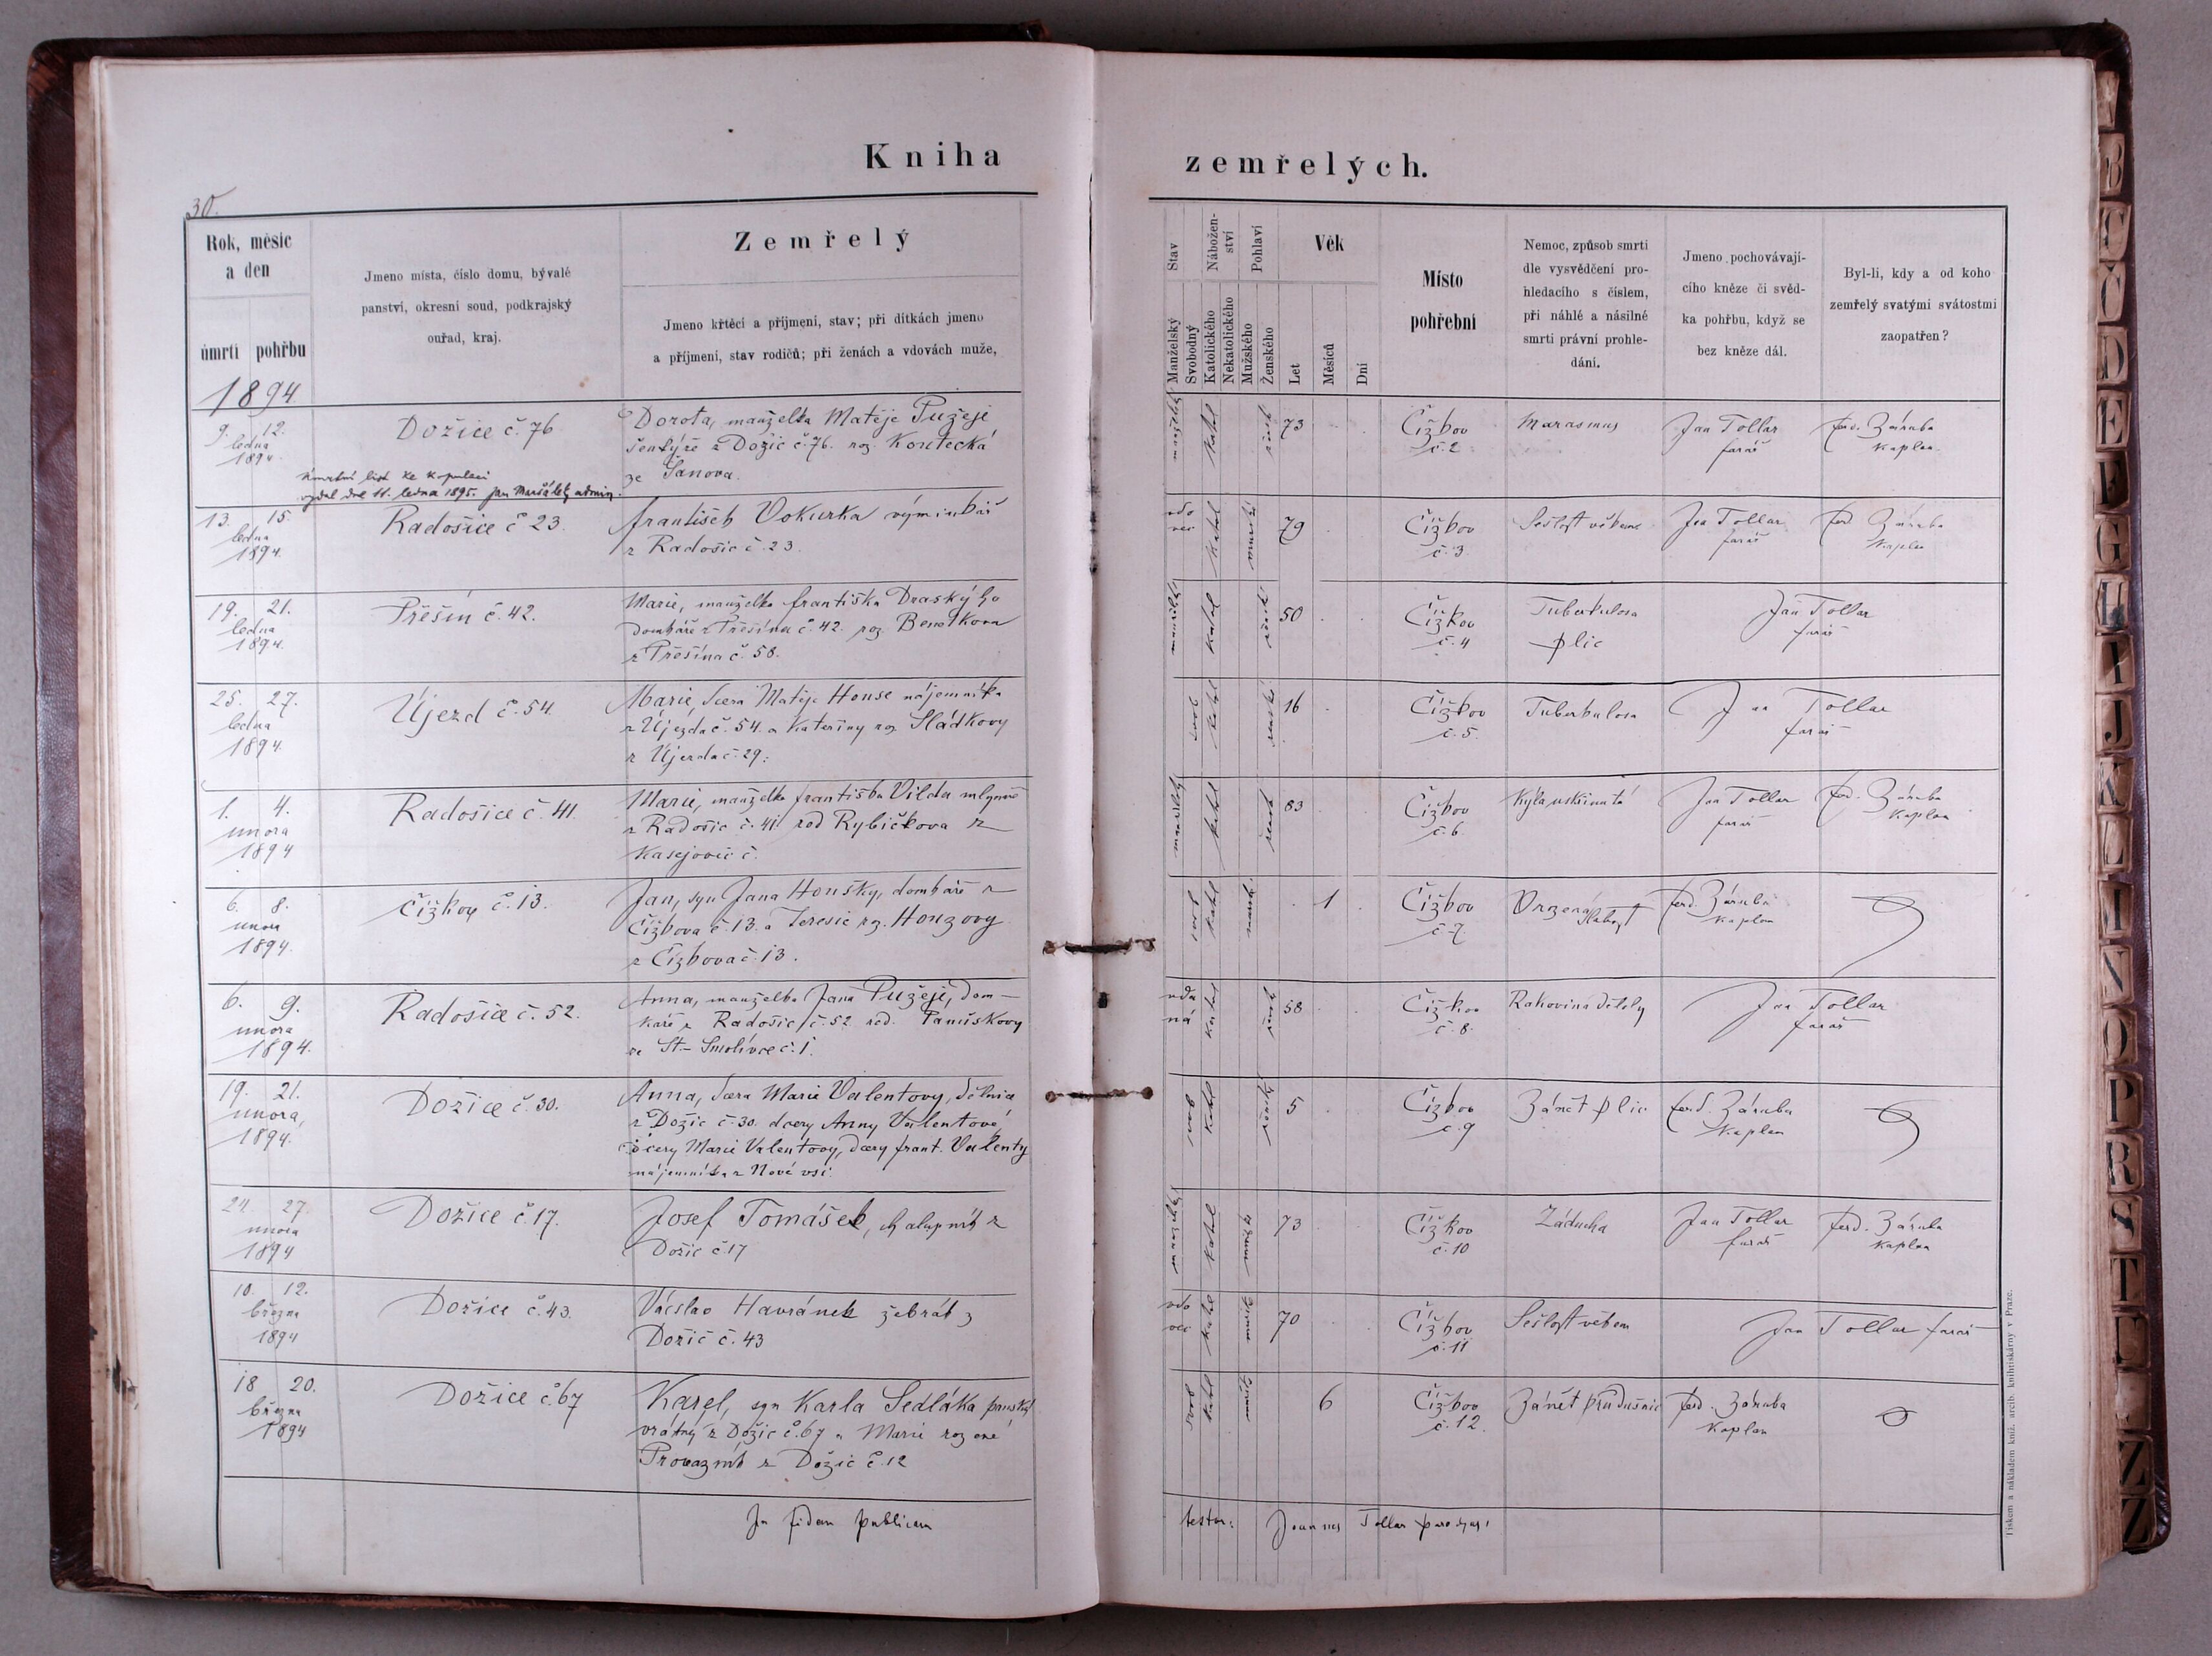 Kniha
zemřelých.
30.
Rok, měsíc
a den
úmrtí pohřbu
Jmeno místa, číslo domu, bývalé
panství, okresní soud, podkrajský
ouřad, kraj.
Zemřelý
Jmeno křtěcí a příjmení, stav; při dítkách jmeno
a příjmení, stav rodičů; při ženách a vdovách muže,
Stav
Manželský
Svobodný
Nábožen-
ství
Katolického
Nekatolického
Pohlaví
Mužského
Ženského
Věk
Let
Měsíců
Dní
Místo
pohřební
Nemoc, způsob smrti
dle vysvědčení pro-
hledacího s číslem,
při náhlé a násilné
smrti právní prohle-
dání.
Jmeno pochovávají-
cího kněze či svěd-
ka pohřbu, když se
bez kněze dál.
Byl-li, kdy a od koho
zemřelý svatými svátostmi
zaopatřen?
1894
9. 12.
ledna
1894
Dožice č. 76
Dorota, manželka Matěje Pužeji
z Dožic č. 76. roz. Koutecká
ze Šanova.
úmrtní list ke kopulaci
vydal dne 11. ledna 1895. Jan admin.
manželský
katol
žensk
73
Čížkov
č. 2
Marasmus
Jan Tollar
farář
Ferd. Záruba
kaplan
13. 15.
ledna
1894.
Radošice č 23.
František Vokurka výminkář
z Radošic č. 23.
vdo
vec
katol
mužské
79
Čížkov
č. 3.
Sešlost věkem
Jan Tollar
farář
Ferd Záruba
kaplan
19. 21.
ledna
1894.
Přešín č. 42.
Marie, manželka Františka Draského
domkáře z Přešína č. 42. roz.
z Přešína č. 58.
manželský
katol
žensk
50
Čížkov
č. 4
Tuberkulosa
plic
Jan Tollar
farář
25. 27.
ledna
1894.
Újezd č. 54.
Marie, dcera Matěje House nájemníka
z Újezda č. 54. a Kateřiny roz Sládkovy
z Újezda č. 29.
svob
katol
ženské
16
Čížkov
č. 5.
Tuberkulosa
Jan Tollar
farář
1. 4.
února
1894
Radošice č. 41.
Marie, manželka Františka Vilda mlynáře
z Radošic č. 41. rod Rybičkova z
Kasejovic č.
manželský
katol
žensk
83
Čížkov
č. 6.
Kýla uskřinutá
Jan Tollar
farář
Ferd. Záruba
kaplan
6. 8.
února
1894.
Čížkov č. 13.
Jan, syn Jana Housky, domkáře z
Čížkova č. 13. a Teresie roz. Houzovy
z Čížkova č. 13.
svob
katol
mužsk.
1
Čížkov
č. 7.
Vrozená
slabost
Ferd. Záruba
kaplan
6. 9.
února
1894.
Radošice č. 52.
Anna, manželka Jana Pužeje, dom-
káře z Radošic č. 52. rod. Panuškovy
ze St. Smolivce č. 1.
vda
ná
katol
žensk
58
Čížkov
č. 8.
Rakovina dělohy
Jan Tollar
farář
19. 21.
února,
1894.
Dožice č. 30.
Anna, dcera Marie Valentovy, dělnice
z Dožic č. 30. dcery Anny Valentové,
dcery Marie Valentovy, dcery Frant. Valenty
nájemníka z Nové vsi.
svob
katol
ženský
5
Čížkov
č. 9
Zánět plic
Ferd. Záruba
kaplan
24. 27.
února
1894
Dožice č. 17.
Josef Tomášek, chalupník z
Dožic č 17
manželský
katol
mužsk
73
Čížkov
č. 10
Záducha
Jan Tollar
farář
Ferd. Záruba
kaplan
10. 12.
března
1894
Dožice č. 43.
Václav Havránek žebrák z
Dožic č. 43
vdo
vec
katol
mužsk
70
Čížkov
č. 11
Sešlost věkem
Jan Tollar farář
18 20.
března
1894
Dožice č. 67
Karel, syn Karla Sedláka panský
vrátný z Dožic č. 67 a Marie rozené
Provazník z Dožic č. 12
svob
katol
mužsk
6
Čížkov
č. 12.
Zánět průdušnic
Ferd. Záruba
kaplan
In fidem publicam
testor: Joannes Tollar parochus
Tiskem a nákladem kníž. arcib. knihtiskárny v Praze.